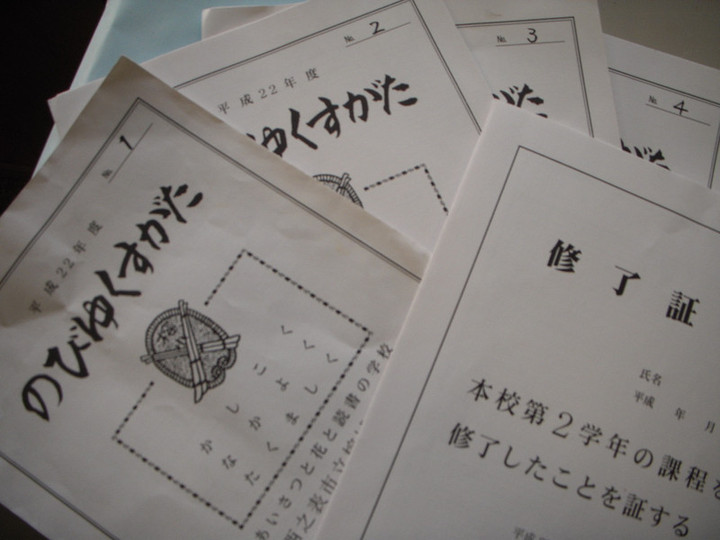 № 1
平成22年度
のびゆくすがた
かしこく
なかよく
たくましく
あいさつと花と読書の学校
之表市立
№ 2
平成22年度
ゆくすがた
№ 3
がた
№ 4
修了証
氏名
平成 年 月
本校第2学年の課程を
修了したことを証する
平成